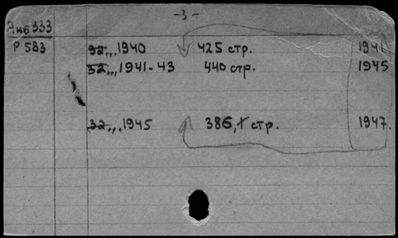 -3-
Яив333
Р 583
За,,, 1940 425 стр. 1941
За,,, 1941-43 440 стр. 1945
За,,, 1945 386, стр. 1947.